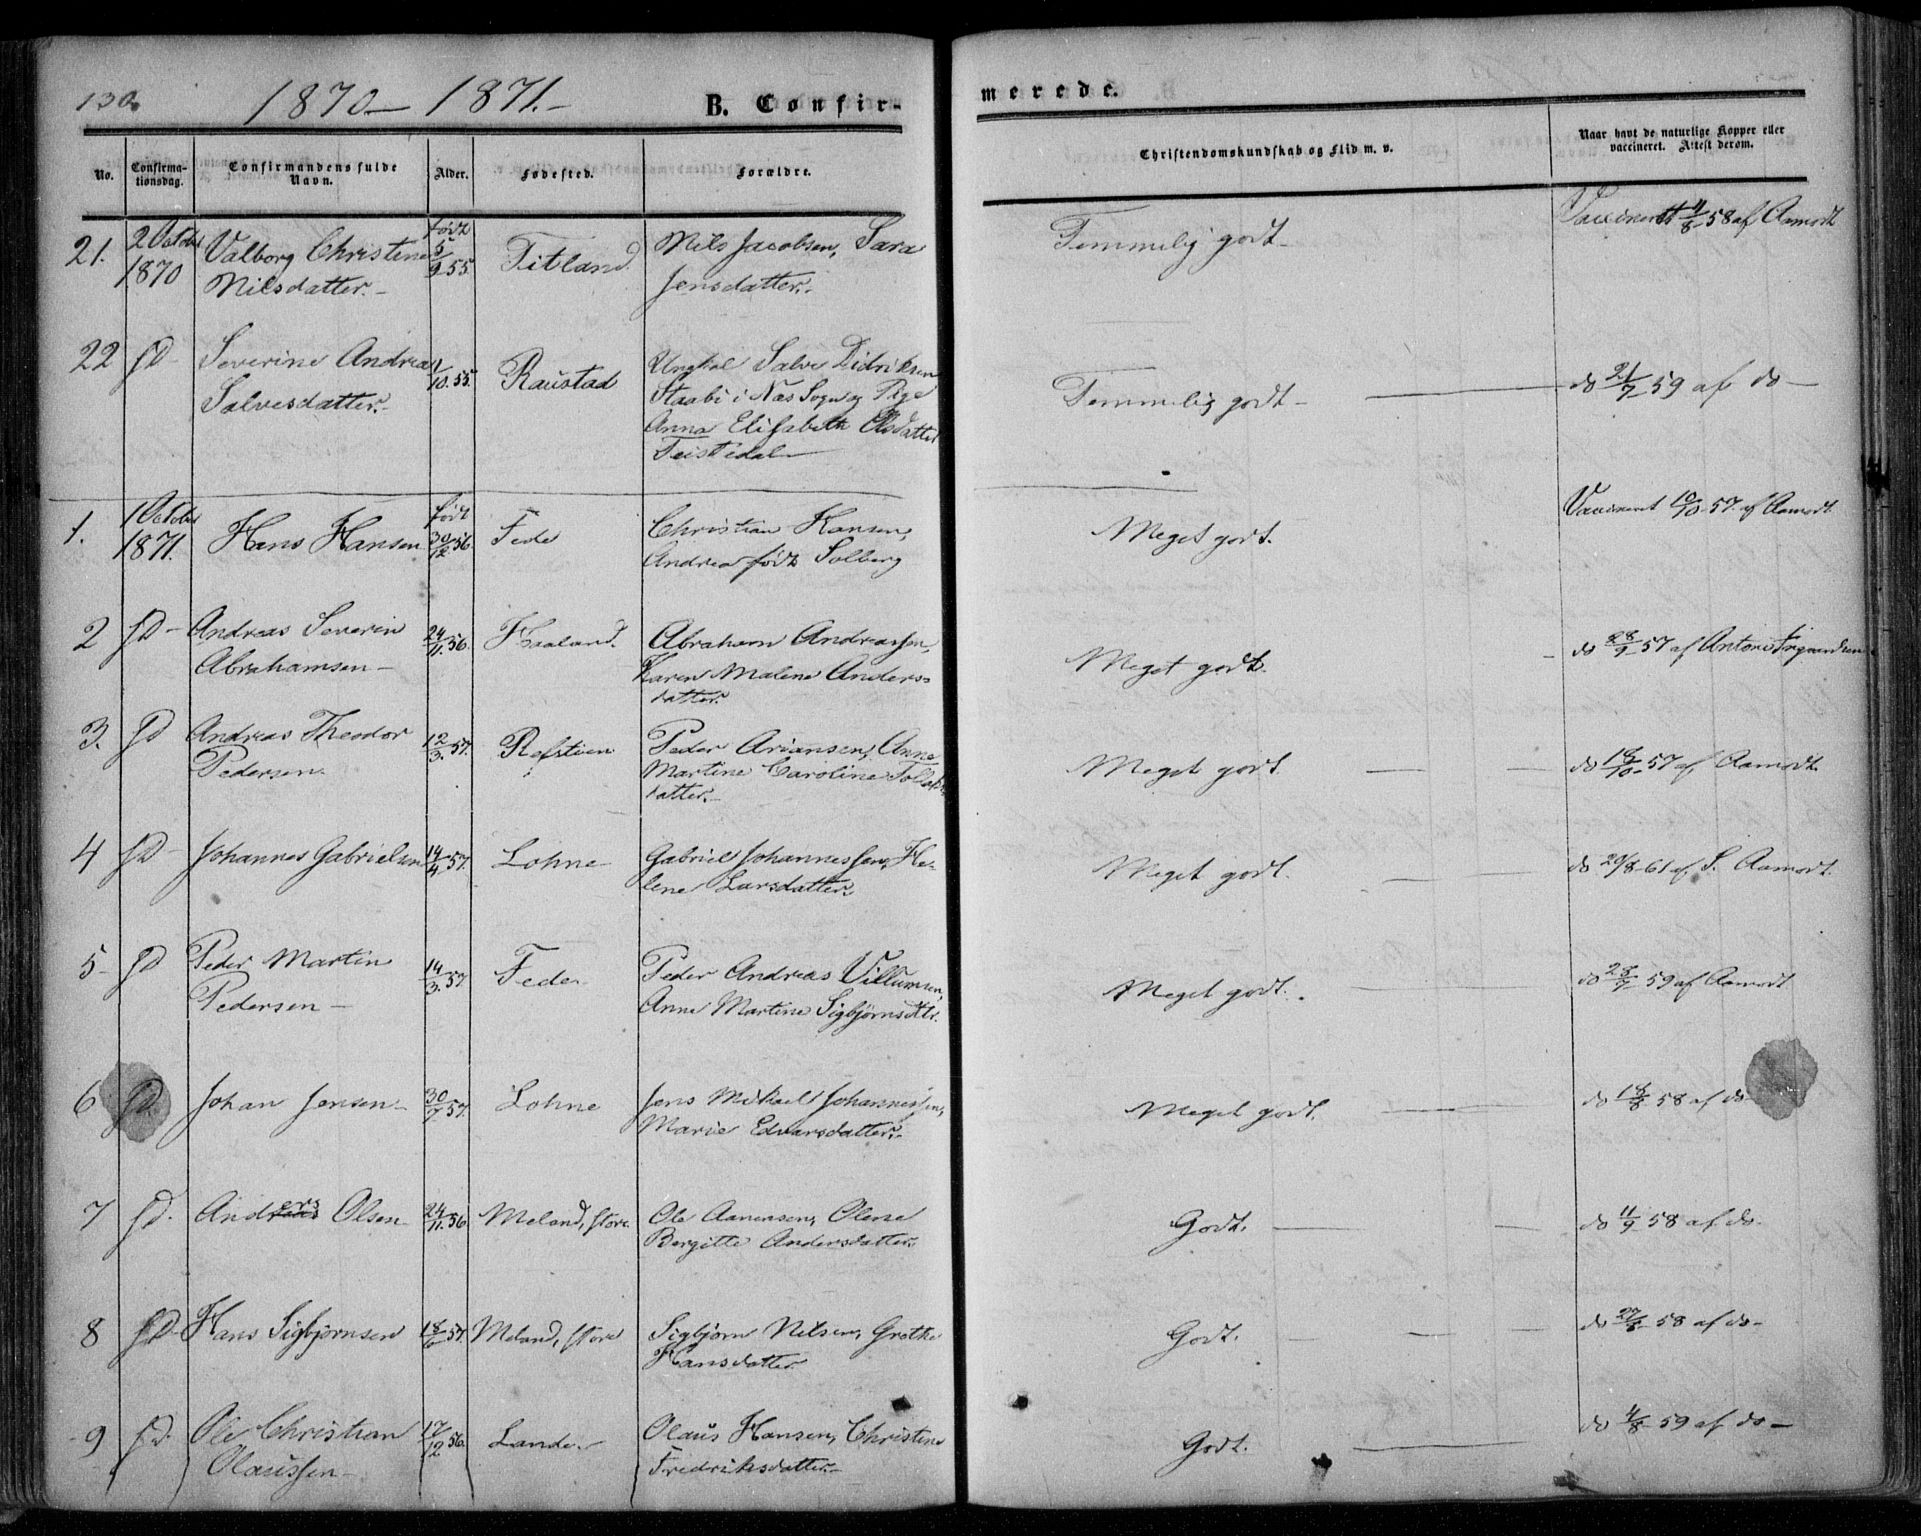 130.
1870 – 1871. –
B. Confir-
merede.
No.
Confirma-
tionsdag.
Confirmandens fulde
Navn.
Alder.
Fødested.
Forældre.
Christendomskundskab og Flid m. v.
Naar havt de naturlige Kopper eller
vaccineret. Attest derom.
21.
2 October
1870
Valborg Christine
Nilsdatter. –
født
5/9 55
Fitland.
Nils Jacobsen, Sara
Jensdatter. –
Temmelig godt –
Vaccineret 11/8 58 af Aamodt
22
sD –
Severine Andrea
Salvesdatter. –
1/10. 55.
Raustad
Ungkal Salve Didriksen
Staabi i Næs Sogn og Pige
Anna Elisabeth Olsdatter
Feistedal –
Temmelig godt –
do 21/7 59 af do –
1.
1 October
1871.
Hans Hansen
født
30/12 56
Fede
Christian Hansen,
Andrea født Solberg
Meget godt.
Vaccineret 10/10 57. af Aamodt
2
sD –
Andreas Severin
Abrahamsen –
24/11. 56.
Haaland.
Abraham Andreassen,
Karen Malene Anders-
datter.
Meget godt.
do 28/9 57 af Antoni
3.
sD
Andreas Theodor
Pedersen.
12/3. 57.
Refstien
Peder Ariansen, Anne
Martine Caroline
datter. –
Meget godt.
do 10/10 57 af Aamodt.
4
sD –
Johannes Gabrielsen
14/4 57.
Lohne –
Gabriel Johannessen, He-
lene Larsdatter.
Meget godt.
do 29/8 61 af S. Aamodt.
5 –
sD
Peder Martin
Pedersen –
14/3. 57
Feder
Peder Andreas Villumsen,
Anne Martine Sigbjørnsdtr.
Meget godt.
do 28/7 59 af Aamodt
6
sD
Johan Jensen –
30/7 57.
Lohne
Jens Mikael Johannessen,
Marie Edvarsdatter. –
Meget godt.
do 18/8 58 af do –
7
sD.
Anders Olsen –
24/11. 56.
Meland, store
Ole Aanensen, Olene
Bergitte Andersdatter.
Godt.
do 11/9 58 af do –
8
sD –
Hans Sigbjørnsen
18/6 57.
Meland, store
Sigbjørn Nilsen, Grethe
Hansdatter
Godt.
do 27/8 58 af do –
9
sD.
Ole Christian
Olaussen –
17/12 56.
Lande. –
Olaus Hansen, Christine
Fredriksdatter. –
Godt.
do 4/8 59 af do –